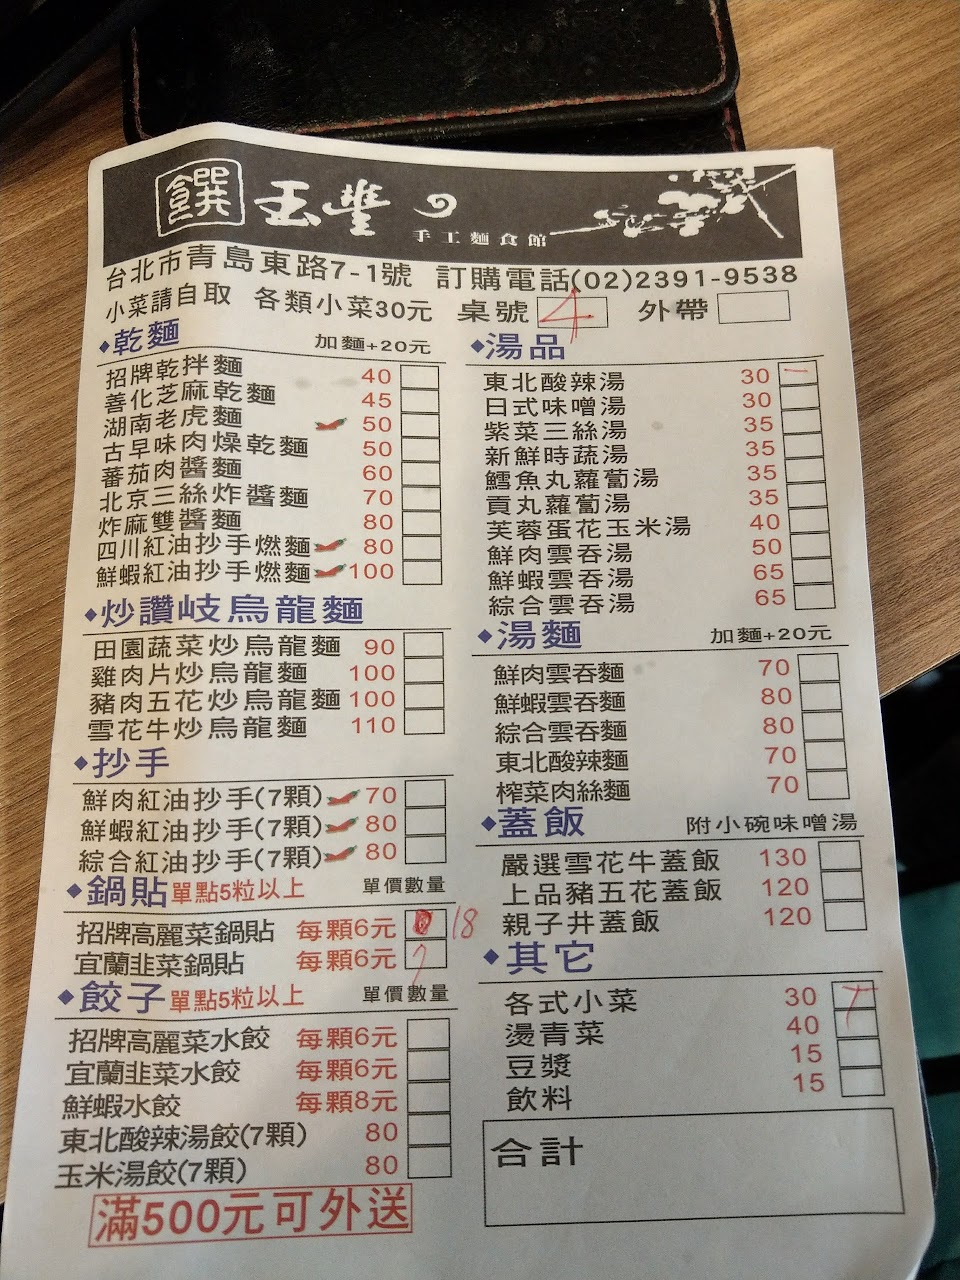 饌 玉豐
手工麵食館
台北市青島東路7-1號 訂購電話(02)2391-9538
小菜請自取 各類小菜30元 桌號 4 外帶
◆乾麵 加麵+20元
招牌乾拌麵 40
善化芝麻乾麵 45
湖南老虎麵 50
古早味肉燥乾麵 50
蕃茄肉醬麵 60
北京三絲炸醬麵 70
炸麻雙醬麵 80
四川紅油抄手燃麵 80
鮮蝦紅油抄手燃麵 100
◆炒讚岐烏龍麵
田園蔬菜炒烏龍麵 90
雞肉片炒烏龍麵 100
豬肉五花炒烏龍麵 100
雪花牛炒烏龍麵 110
◆抄手
鮮肉紅油抄手(7顆) 70
鮮蝦紅油抄手(7顆) 80
綜合紅油抄手(7顆) 80
◆鍋貼 單點5粒以上 單價數量
招牌高麗菜鍋貼 每顆6元 18
宜蘭韭菜鍋貼 每顆6元
◆餃子 單點5粒以上 單價數量
招牌高麗菜水餃 每顆6元
宜蘭韭菜水餃 每顆6元
鮮蝦水餃 每顆8元
東北酸辣湯餃(7顆) 80
玉米湯餃(7顆) 80
滿500元可外送
◆湯品
東北酸辣湯 30 一
日式味噌湯 30
紫菜三絲湯 35
新鮮時蔬湯 35
鱈魚丸蘿蔔湯 35
貢丸蘿蔔湯 35
芙蓉蛋花玉米湯 40
鮮肉雲吞湯 50
鮮蝦雲吞湯 65
綜合雲吞湯 65
◆湯麵 加麵+20元
鮮肉雲吞麵 70
鮮蝦雲吞麵 80
綜合雲吞麵 80
東北酸辣麵 70
榨菜肉絲麵 70
◆蓋飯 附小碗味噌湯
嚴選雪花牛蓋飯 130
上品豬五花蓋飯 120
親子丼蓋飯 120
◆其它
各式小菜 30
燙青菜 40
豆漿 15
飲料 15
合計